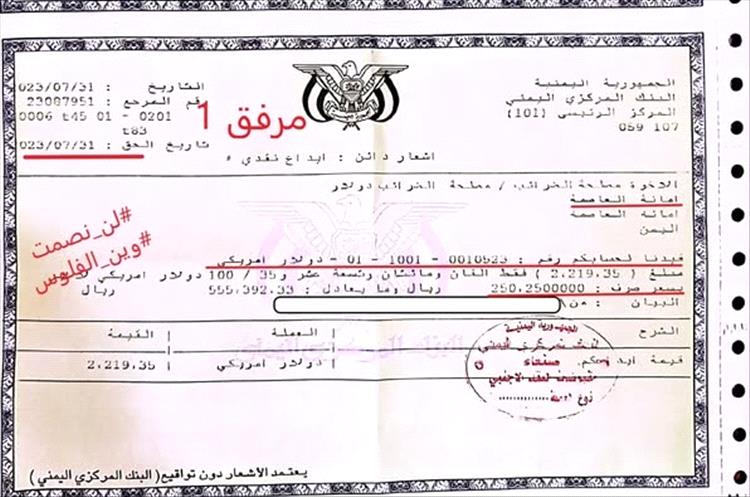 الجمهورية اليمنية
البنك المركزي اليمني
المركز الرئيسي (101)
059 107
التاريخ : 023/07/31
رقم المرجع : 23087951
0006 t45 01 - 0201
t83
تاريخ الحق : 023/07/31
مرفق 1
اشعار دائن : ايداع نقدي
الاخوة مصلحة الضرائب / مصلحة الضرائب دولار
امانة العاصمة
امانة العاصمة
اليمن
#لن_نصمت
#وين_الفلوس
قيدنا لحسابكم رقم : 0010523 - 1001 - 01 - دولار امريكي
مبلغ ( 2,219.35 ) فقط الفان ومائتان وتسعة عشر و 35 / 100 دولار امريكي
بسعر صرف : 250.2500000 ريال وما يعادل : 555,392.33 ريال
البيان : من
الشرح | العملة | القيمة
قيمة ايداعكم | دولار امريكي | 2,219.35
الجمهورية اليمنية
البنك المركزي اليمني
صنعاء
يعتمد الأشعار دون تواقيع ( البنك المركزي اليمني )